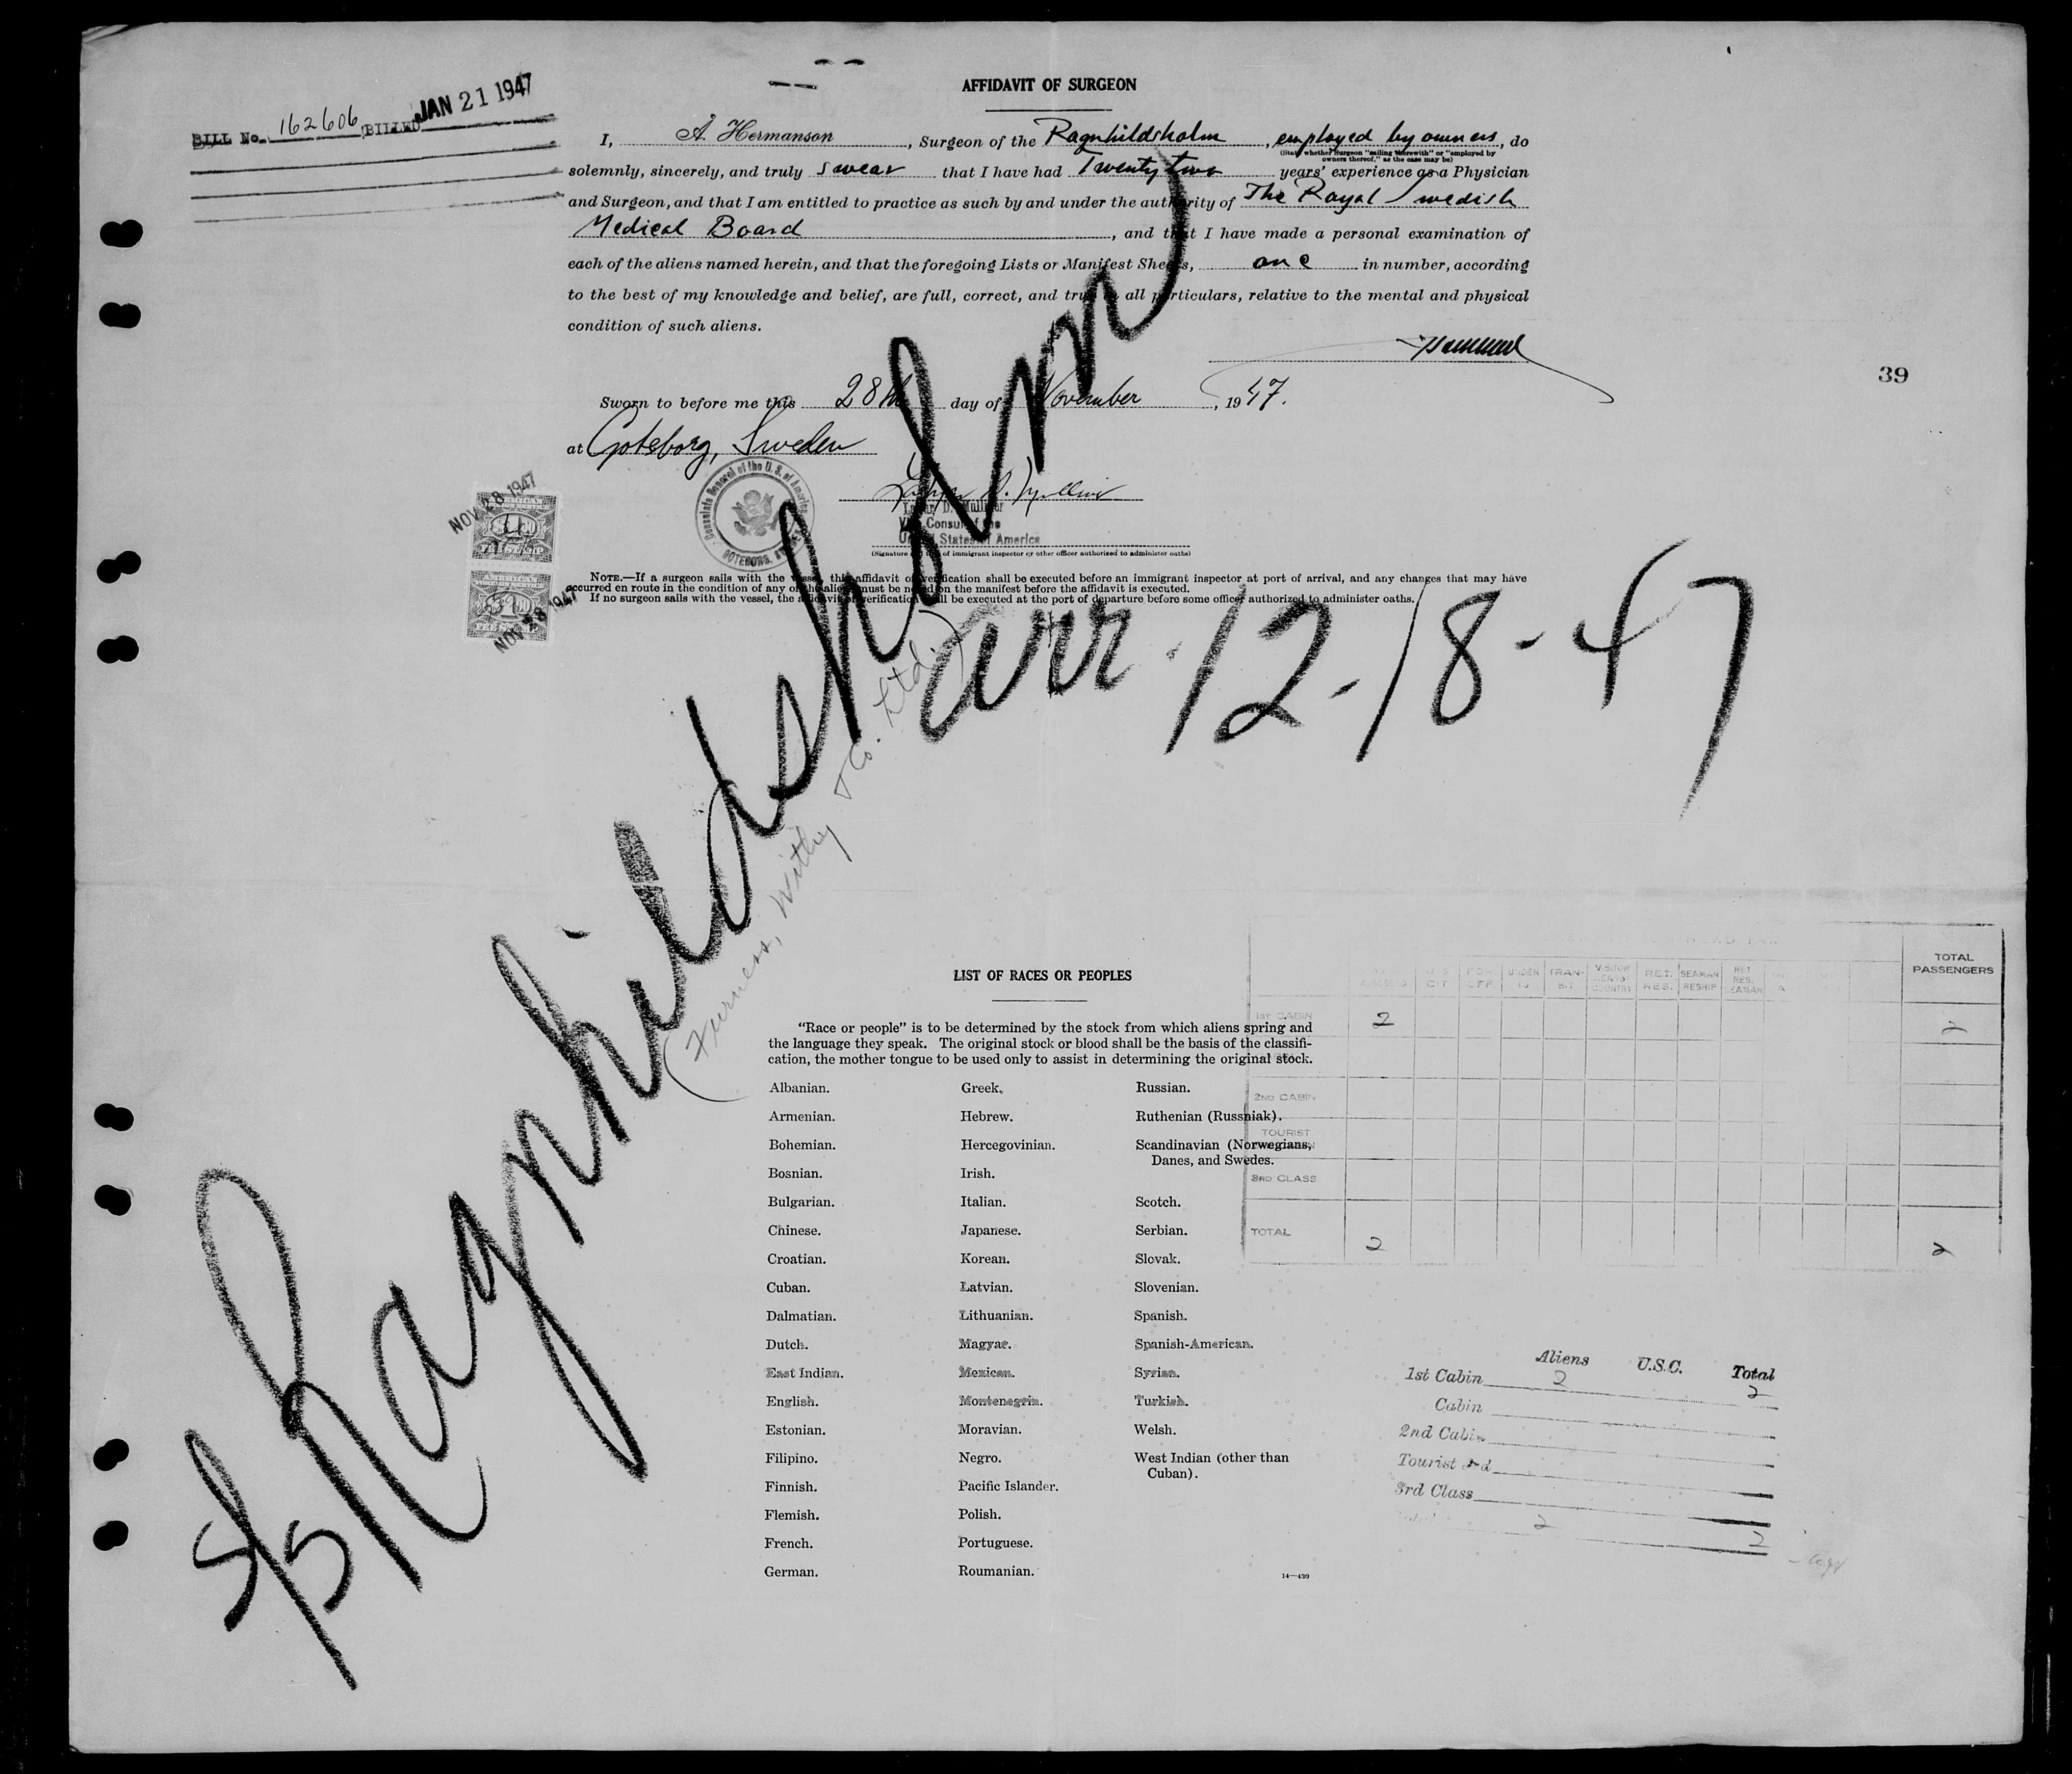 AFFIDAVIT OF SURGEON
BILL No. 162606 BILLED JAN 21 1947
I, Å. Hermanson, Surgeon of the Ragnhildsholm, employed by owners, do
(State whether Surgeon "sailing therewith" or "employed by
owners thereof," as the case may be)
solemnly, sincerely, and truly swear that I have had Twenty two years' experience as a Physician
and Surgeon, and that I am entitled to practice as such by and under the authority of The Royal Swedish
Medical Board, and that I have made a personal examination of
each of the aliens named herein, and that the foregoing Lists or Manifest Sheets, one in number, according
to the best of my knowledge and belief, are full, correct, and true in all particulars, relative to the mental and physical
condition of such aliens.
39
Sworn to before me this 28th day of November, 1947.
at Goteborg, Sweden
Consulate General of the U. S. of America
GOTEBORG, SWEDEN
D. Mulliner
Vice Consul of the
United States of America
(Signature and of immigrant inspector or other officer authorized to administer oaths)
NOV 28 1947
AMERICAN
FEE STAMP
AMERICAN
FEE STAMP
NOV 28 1947
NOTE.—If a surgeon sails with the vessel, this affidavit of verification shall be executed before an immigrant inspector at port of arrival, and any changes that may have
occurred en route in the condition of any of the aliens must be noted on the manifest before the affidavit is executed.
If no surgeon sails with the vessel, the affidavit of verification shall be executed at the port of departure before some officer authorized to administer oaths.
S/S Ragnhildsholm
(Furness, Withy & Co. Ltd.)
arr. 12-18-47
LIST OF RACES OR PEOPLES
"Race or people" is to be determined by the stock from which aliens spring and
the language they speak. The original stock or blood shall be the basis of the classifi-
cation, the mother tongue to be used only to assist in determining the original stock.
Albanian.
Armenian.
Bohemian.
Bosnian.
Bulgarian.
Chinese.
Croatian.
Cuban.
Dalmatian.
Dutch.
East Indian.
English.
Estonian.
Filipino.
Finnish.
Flemish.
French.
German.
Greek.
Hebrew.
Hercegovinian.
Irish.
Italian.
Japanese.
Korean.
Latvian.
Lithuanian.
Magyar.
Mexican.
Montenegrin.
Moravian.
Negro.
Pacific Islander.
Polish.
Portuguese.
Roumanian.
Russian.
Ruthenian (Russniak).
Scandinavian (Norwegians,
Danes, and Swedes.
Scotch.
Serbian.
Slovak.
Slovenian.
Spanish.
Spanish-American.
Syrian.
Turkish.
Welsh.
West Indian (other than
Cuban).
14—430
HEAD TAX
U S CIT FOR. OFF. UNDER 16 TRAN- SIT VISITOR COUNTRY RET. RES. SEAMAN RESHIP RET. RES. SEAMAN TOTAL PASSENGERS
1ST CABIN 2 2
2ND CABIN
TOURIST
3RD CLASS
TOTAL 2 2
Aliens U.S.C. Total
1st Cabin 2 2
Cabin
2nd Cabin
Tourist 3rd
3rd Class
Total 2 2